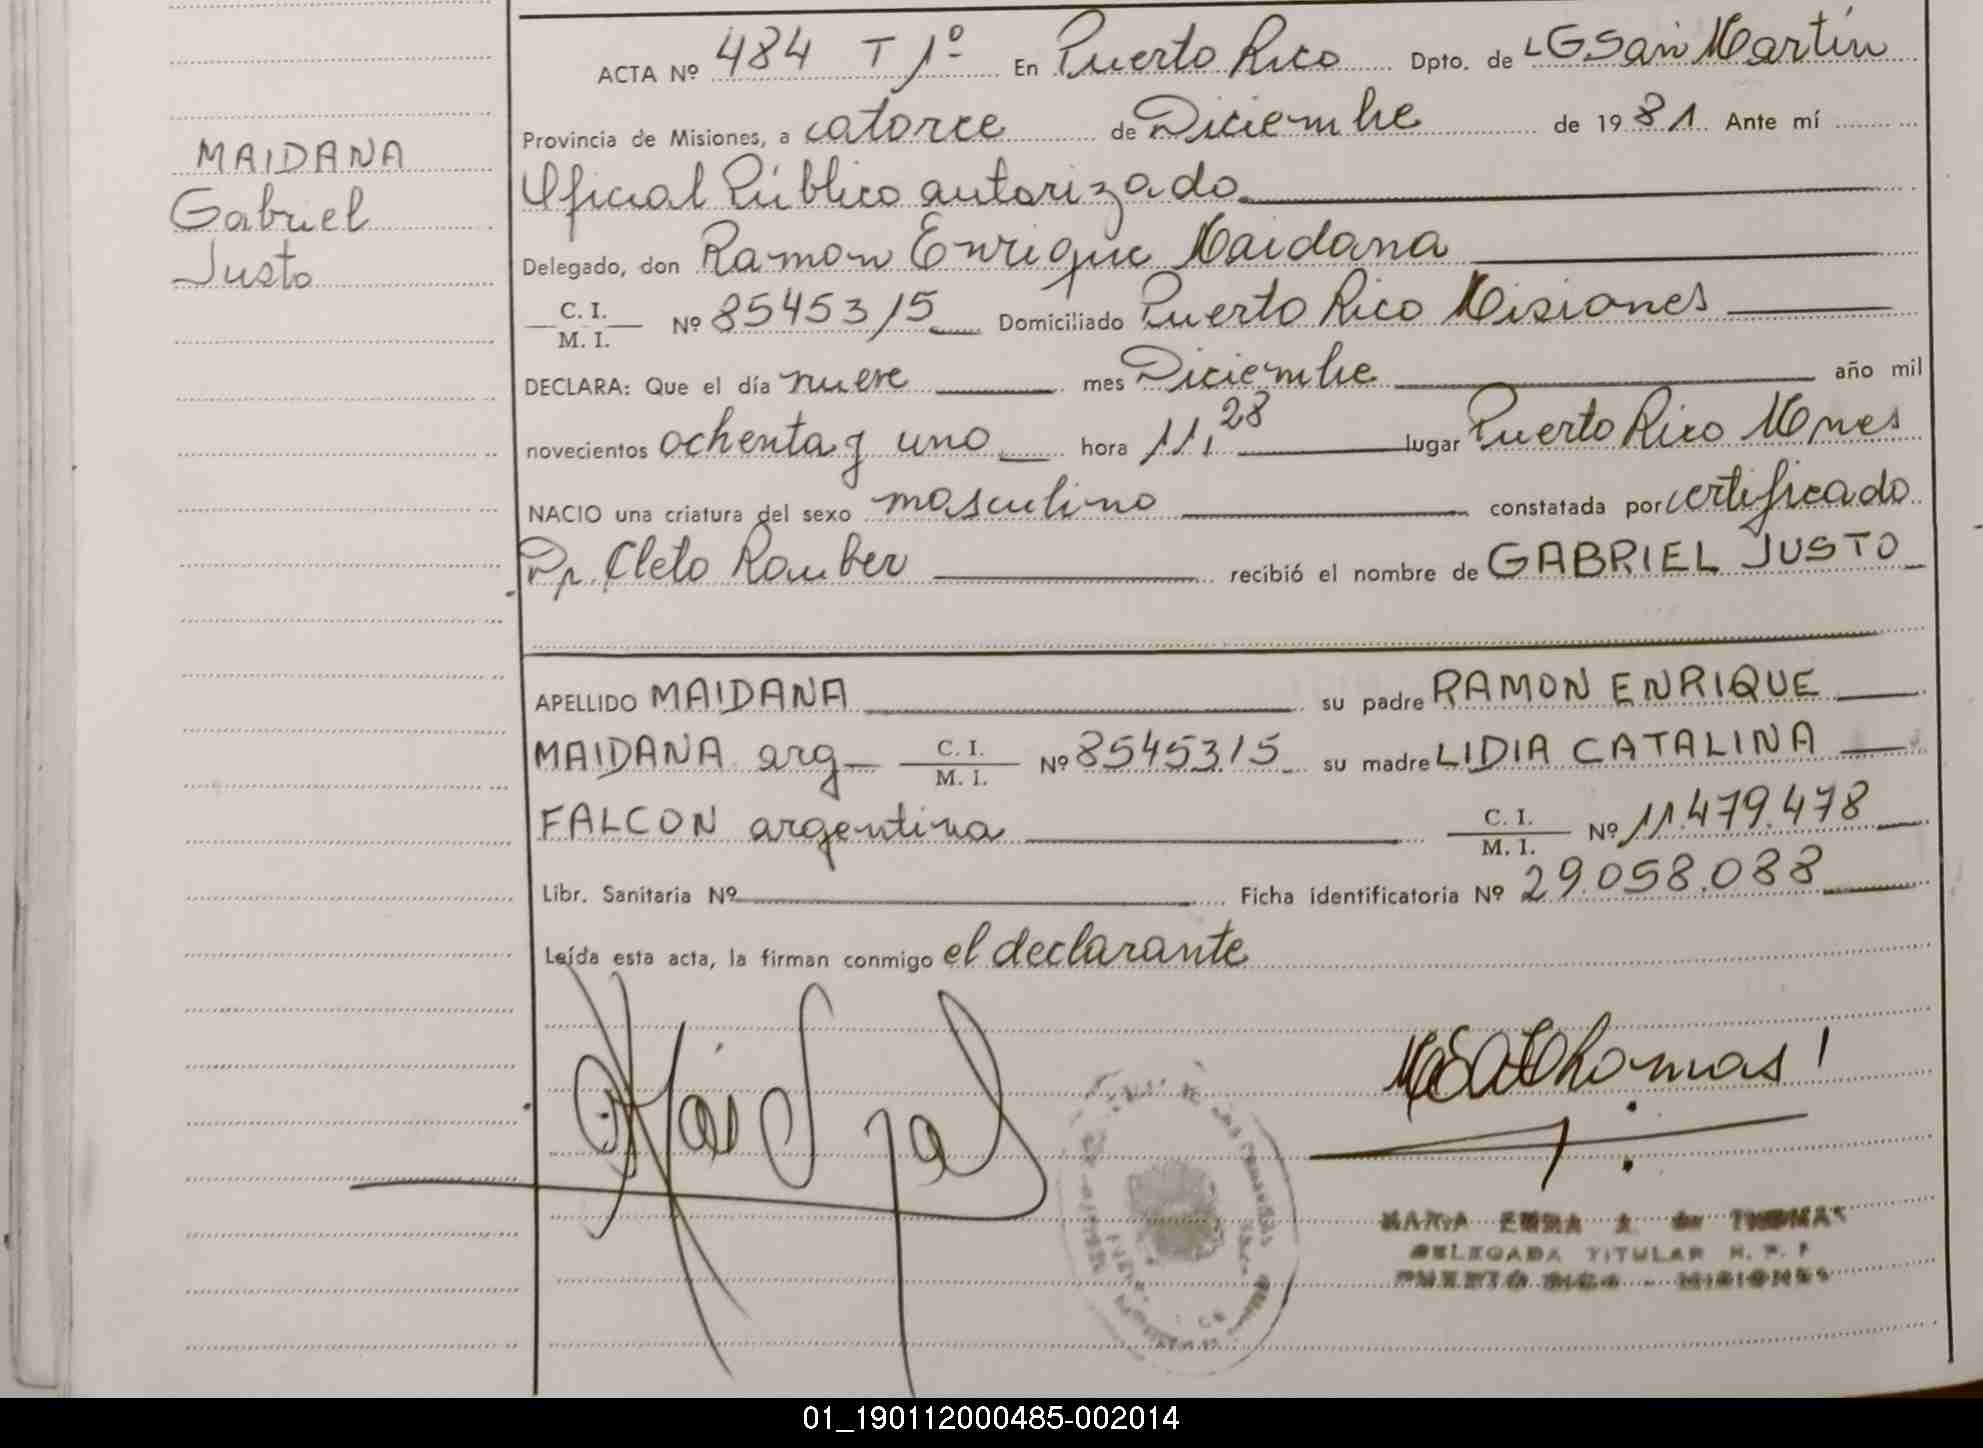 MAIDANA
Gabriel
Justo
ACTA Nº 484 T 1º En Puerto Rico Dpto. de LGSan Martín
Provincia de Misiones, a catorce de Diciembre de 1981. Ante mí
Oficial Público autorizado
Delegado, don Ramon Enrique Maidana
C. I.
M. I. Nº 8545315 Domiciliado Puerto Rico Misiones
DECLARA: Que el día nueve mes Diciembre año mil
novecientos ochenta y uno hora 11,28 lugar Puerto Rico Mnes
NACIO una criatura del sexo masculino constatada por certificado
Dr. Cleto Rauber recibió el nombre de GABRIEL JUSTO
APELLIDO MAIDANA su padre RAMON ENRIQUE
MAIDANA arg C. I.
M. I. Nº 8545315 su madre LIDIA CATALINA
FALCON argentina C. I.
M. I. Nº 11.479.478
Libr. Sanitaria Nº Ficha identificatoria Nº 29.058.088
Leída esta acta, la firman conmigo el declarante
MARIA EMMA de THOMAS
DELEGADA TITULAR
PUERTO RICO - MISIONES
01_190112000485-002014